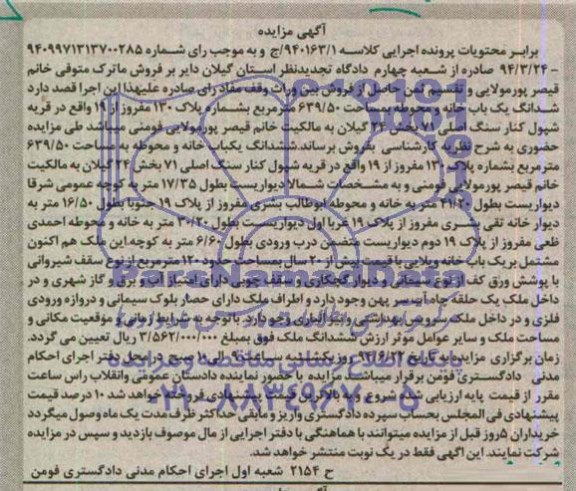 آگهی مزایده
برابر محتویات پرونده اجرایی کلاسه ۹۴۰۱۶۳/۱/ج و به موجب رای شماره ۹۴۰۹۹۷۱۳۱۳۷۰۰۲۸۵
- ۹۴/۳/۲۴ صادره از شعبه چهارم دادگاه تجدیدنظر استان گیلان دایر بر فروش ماترک متوفی خانم
قیصر پورمولایی و تقسیم ثمن حاصل از فروش بین وراث وقف مفاد رای صادره علیهذا این اجرا قصد دارد
ششدانگ یک باب خانه و محوطه بمساحت ۶۳۹/۵۰ مترمربع بشماره پلاک ۱۳۰ مفروز از ۱۹ واقع در قریه
شپول کنار سنگ اصلی ۷۱ بخش ۲۴ گیلان به مالکیت خانم قیصر پورمولایی فومنی میباشد طی مزایده
حضوری به شرح نظریه کارشناسی بفروش برساند.ششدانگ یکباب خانه و محوطه به مساحت ۶۳۹/۵۰
مترمربع بشماره پلاک ۱۳۰ مفروز از ۱۹ واقع در قریه شپول کنار سنگ اصلی ۷۱ بخش ۲۴ گیلان به مالکیت
خانم قیصر پورمولایی فومنی و به مشخصات شمالا دیواریست بطول ۱۷/۳۵ متر به کوچه عمومی شرقا
دیواریست بطول ۴۱/۲۰ متر به خانه و محوطه ابوطالب بشری مفروز از پلاک ۱۹ جنوبا بطول ۱۶/۵۰ متر به
دیوار خانه تقی بشری مفروز از پلاک ۱۹ غربا اول دیواریست بطول ۳۰/۲۰ متر به خانه و محوطه احمدی
ظعی مفروز از پلاک ۱۹ دوم دیواریست متضمن درب ورودی بطول ۶/۶۰ متر به کوچه.این ملک هم اکنون
مشتمل بر یک باب خانه ویلایی با قدمت بیش از ۲۰ سال بمساحت حدود ۱۲۰ مترمربع از نوع سقف شیروانی
با پوشش ورق کف از نوع سیمانی و دیوار گچکاری و سقف چوبی دارای امتیاز آب و برق و گاز شهری و در
داخل ملک یک حلقه چاه آب سر پهن وجود دارد و اطراف ملک دارای حصار بلوک سیمانی و دروازه ورودی
فلزی و در داخل ملک سرویس بهداشتی و انباری وجود دارد. با توجه به شرایط زمانی و موقعیت مکانی و
مساحت ملک و سایر عوامل موثر ارزش ششدانگ ملک فوق بمبلغ ۳/۵۶۲/۰۰۰/۰۰۰ ریال تعیین می گردد.
زمان برگزاری مزایده به تاریخ روز یکشنبه ساعت ۹ الی ۱۰ صبح در محل دفتر اجرای احکام
مدنی دادگستری فومن برقرار میباشد. مزایده با حضور نماینده دادستان عمومی وانقلاب راس ساعت
مقرر از قیمت پایه ارزیابی شده شروع و به بالاترین قیمت پیشنهادی فروخته خواهد شد ۱۰ درصد قیمت
پیشنهادی فی المجلس بحساب سپرده دادگستری واریز و مابقی حداکثر ظرف مدت یک ماه وصول میگردد
خریداران ۵روز قبل از مزایده میتوانند با هماهنگی با دفتر اجرایی از مال موصوف بازدید و سپس در مزایده
شرکت نمایند. این اگهی فقط در یک نوبت منتشر خواهد شد.
ح ۲۱۵۴ شعبه اول اجرای احکام مدنی دادگستری فومن
ParsNamadData